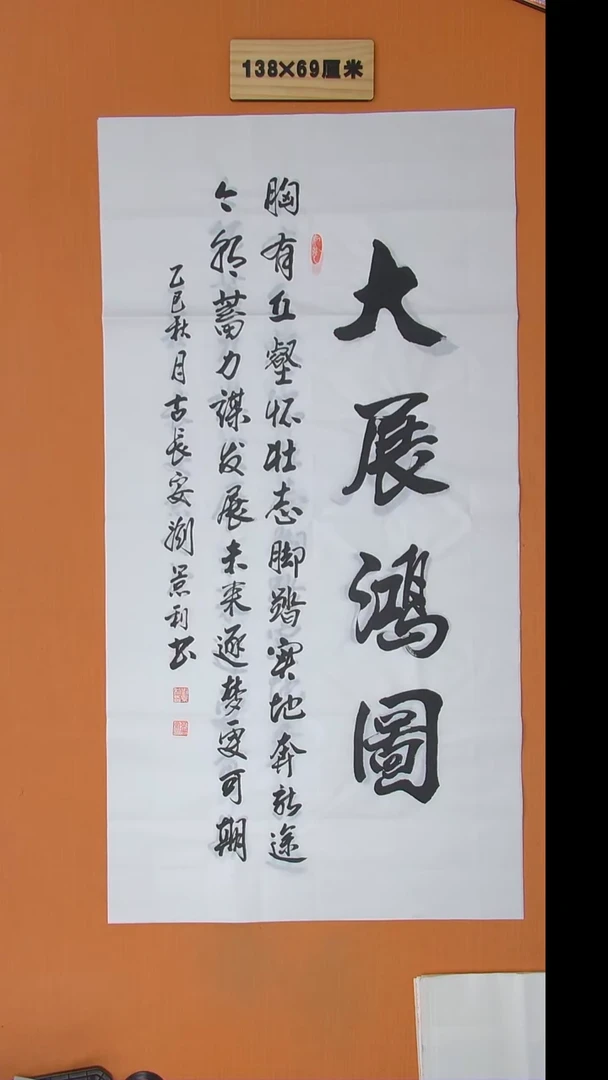 138×69厘米
大展鴻圖
胸有丘壑怀壮志脚踏实地奔新途
今朝蓄力谋发展未来逐梦更可期
乙巳秋月古长安刘景利书